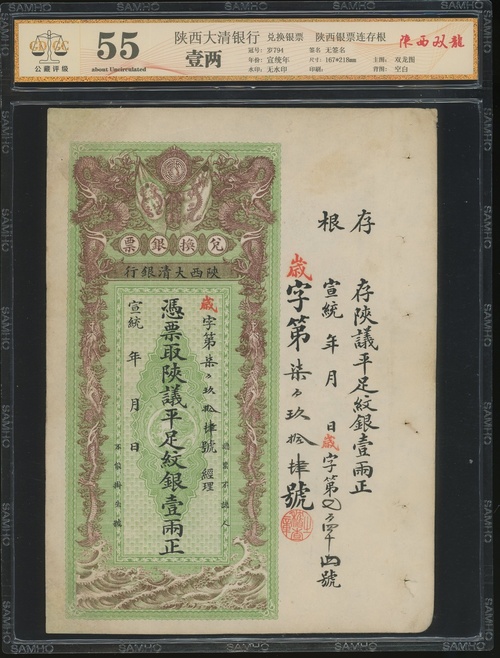 GCGC GCGC
公藏评级
55
about Uncirculated
陕西大清银行 兑换银票 陕西银票连存根
壹两
冠号: 岁794 签名: 无签名
年份: 宣统年 尺寸: 167*218mm 主图: 双龙图
水印: 无水印 印刷: 背图: 空白
陝西双龍
存根
存陝議平足紋銀壹兩正
宣統 年 月 日 歲字第 四號
歲字第柒百玖拾肆號
兌換銀票
陝西大清銀行
歲字第柒百玖拾肆號 經理
憑票取陝議平足紋銀壹兩正
宣統 年 月 日